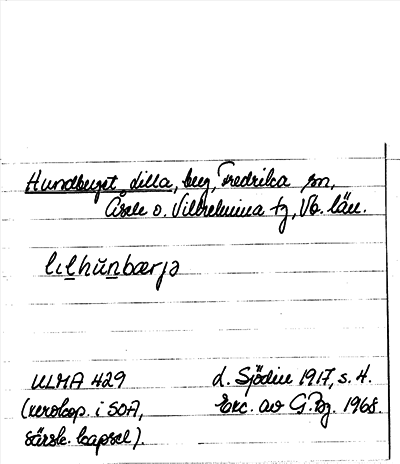 Hundberget, Lilla, berg, Fredrika sn,
Åsele o. Vilhelmina tg, Vb. län.
lɩlhŭnbærjə
ULMA 429
(xerokop. i SOA,
särsk. kapsel).
L. Sjödin 1917, s. 4.
Exc. av G. Bg. 1968.